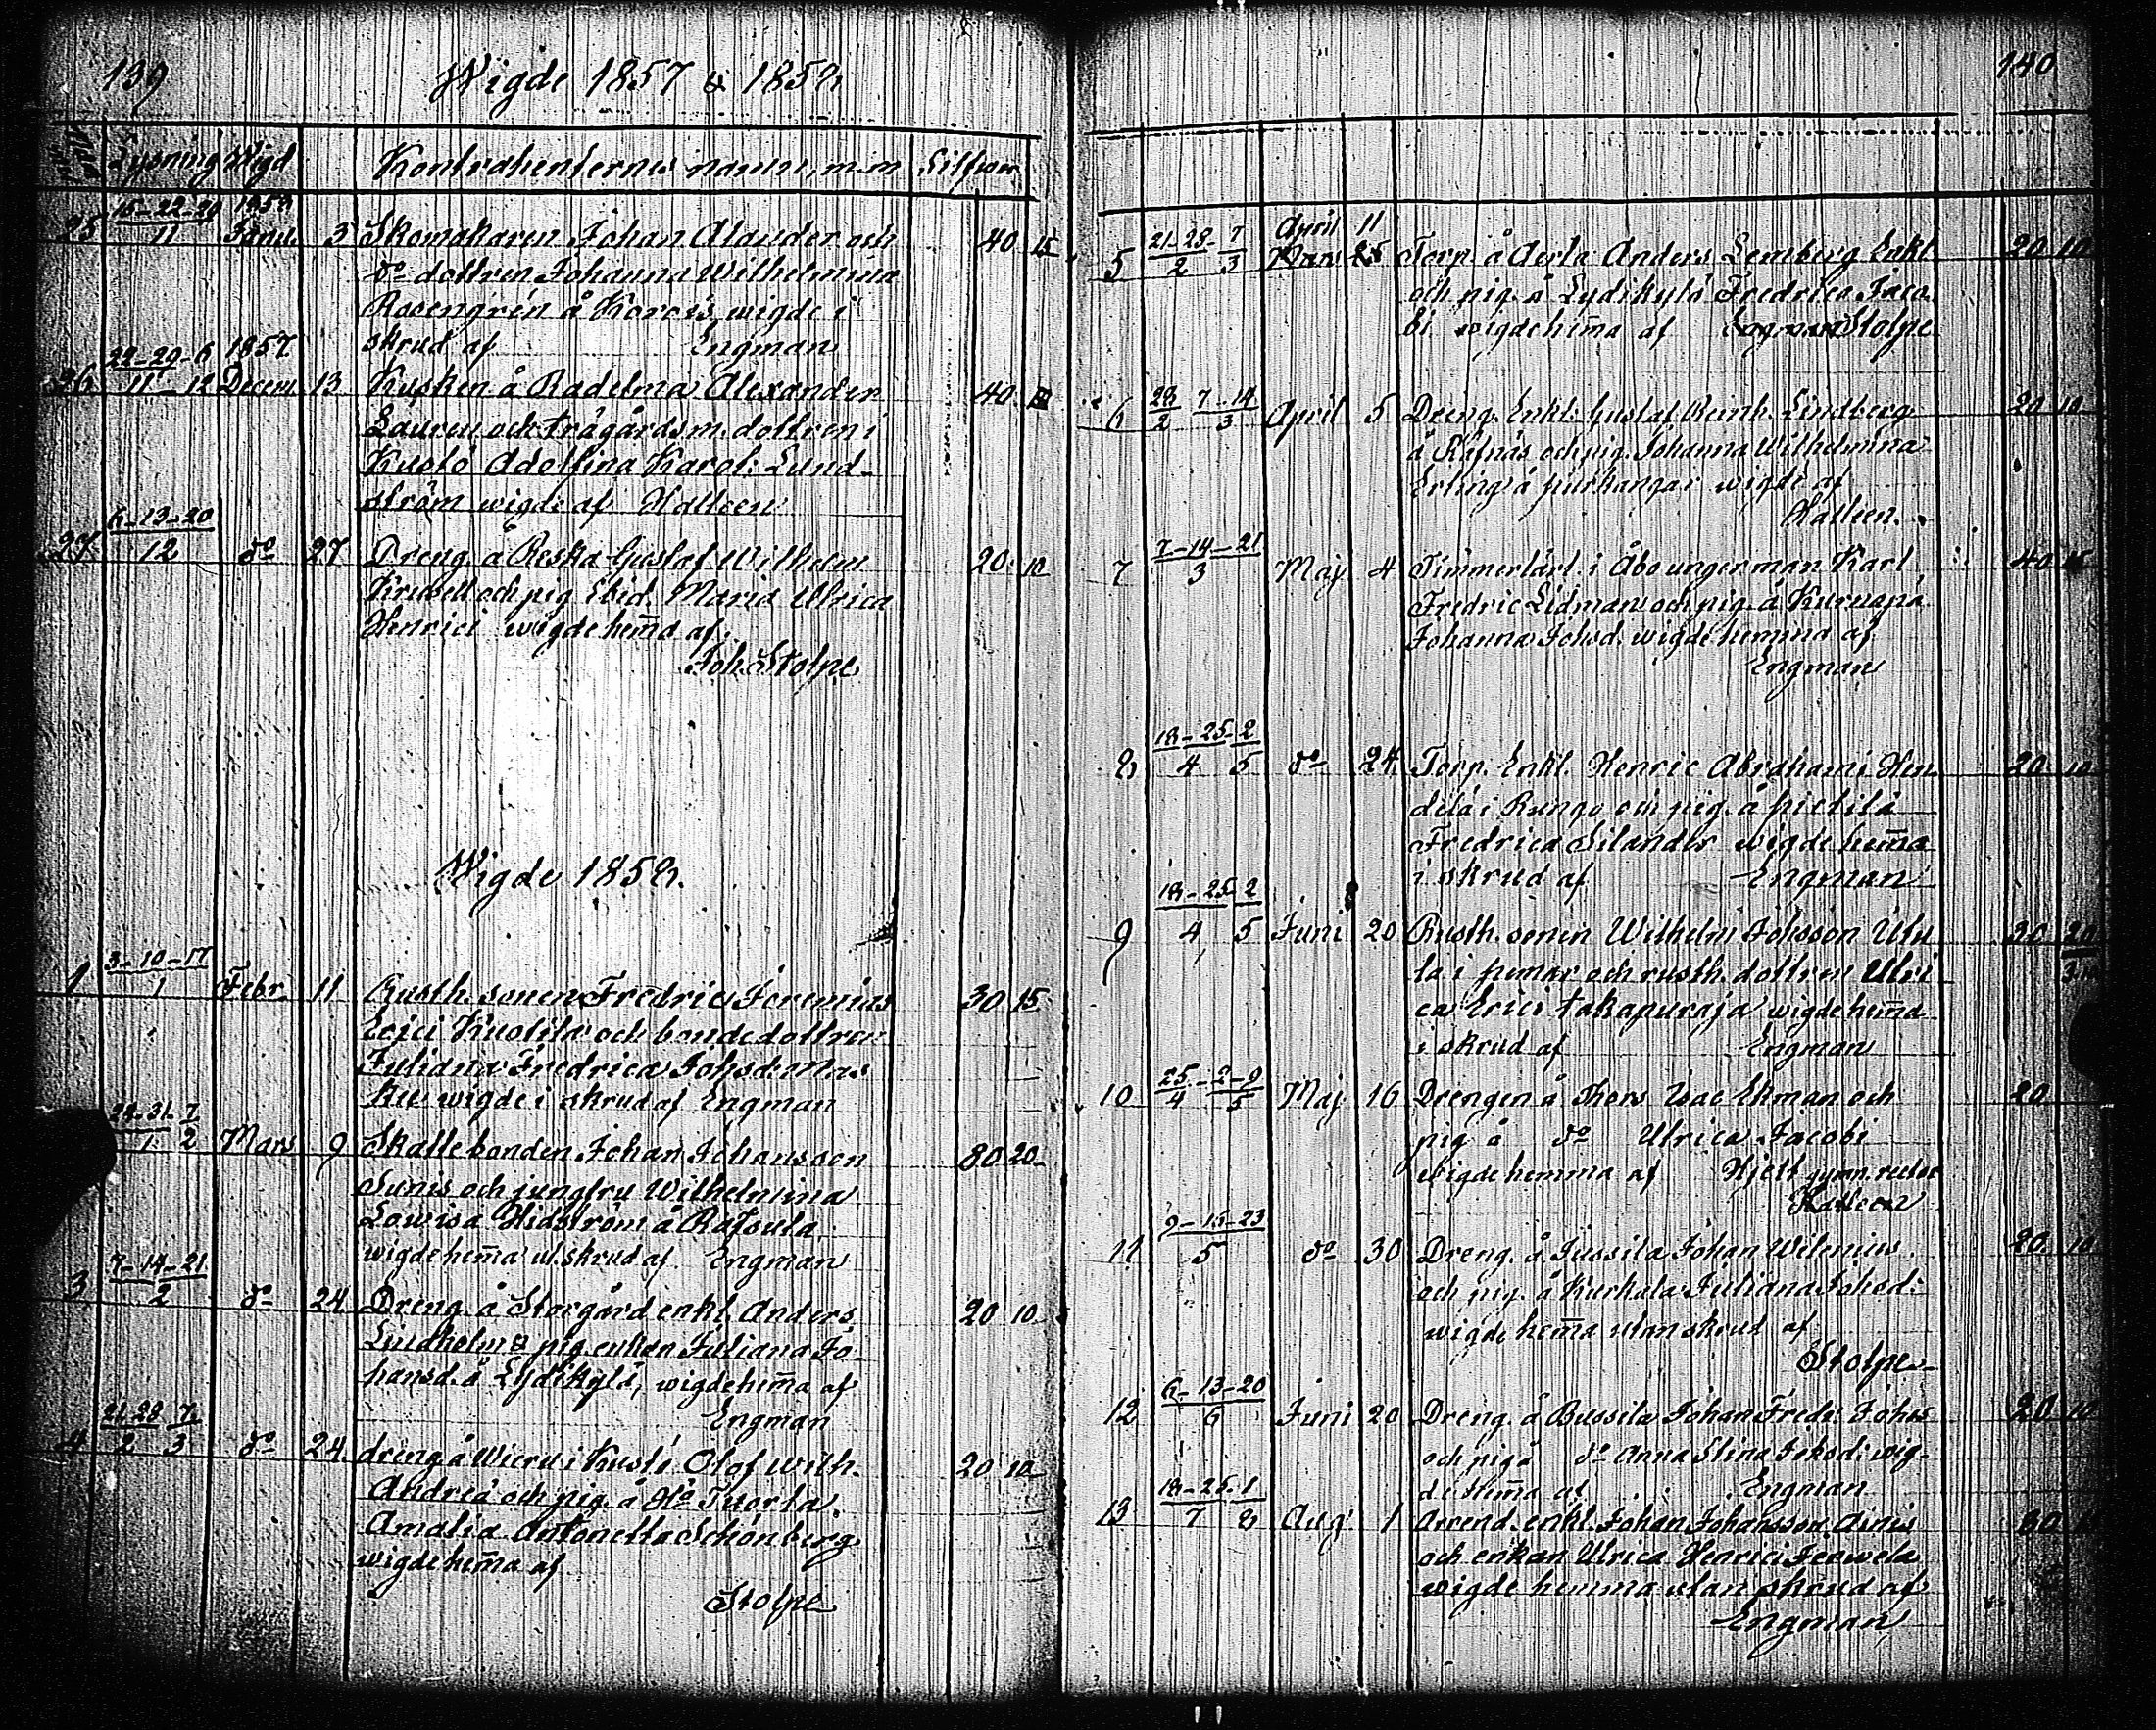 139
Wigde 1857 & 1858
Lysning Wigd Kontrahenternes namn, m.m. Silfver
15-22-29 1858
25 11 Januar. 3 Skomakaren Johan Alander och 40 15
do dottren Johanna Wilhelmina
Rosengrén å Korois, wigde i
skrud af Engman
22-29-6 1857
26 11-12 Decem. 13 Kusken å Radelma Alexander 40
Lauren och trägårdsm. dottren i
Kustö Adolfina Karol. Lund-
ström wigde af Hallleen
6-13-20
27 12 do 27 Dreng. å Reska Gustaf Wilhelm 20 10
och pig. Ebid. Maria Ulrica
Henrici wigde hem̄a af
Joh. Stolpe
Wigde 1858.
3-10-17
1 1 Febr. 11 Rusth. sonen Fredric Jeremias 30 15
Erici Kuotila och bondedottren
Juliana Fredrica Johsd. Mas
ku wigde i skrud af Engman
24-31 7
1 2 Mars 9 Skattebonden Johan Johansson 80 20
Junis och jungfru Wilhelmina
Lowisa Hidström å Raisula
wigde hem̄a ut. skrud af Engman
7-14-21
3 2 do 24 Dreng. å Storgård enkl. Anders 20 10
Lindholm & pig. enkan Juliana Jo-
hansd. å Lydikylä, wigde hem̄a af
Engman
21-28 7
4 2 3 do 24. dreng å Wieru i Kustö Olof Wilh. 20 10
Andreä och pig. å Tuorla
Amalia Antonetta Schönberg
wigde hem̄a af
Stolpe
140
April 11
5 21-28-7 2 3 Mars 25 Torp. å Aerla Anders Lemberg Enkl 20 10
och pig. å Lydikylä Fredrica Jaco
bi wigde hem̄a af Engman Stolpe
6 28 7-14 2 3 April 5 Dreng. Enkl. Gustaf Reinh. Lindberg 20 10
å Räfnäs och pig. Johanna Wilhelmina
Erling å purhanga i wigde af
Halleen.
7-14-21
7 3 Maj 4 Timmerlärl. i Åbo ungerman Karl 40 15
Fredric Lidman och pig. å Kurnapa
Johanna Johsd. wigde hemma af
Engman
18-25-2
8 4 5 do 24 Torp. Enkl. Henric Abrahami Hen 20 10
delä i Rungo och pig. å pietilä
Fredrica Silander wigde hem̄a
i skrud af Engman
18-25-2
9 4 5 Juni 20 Rusth. sonen Wilhelm Johsson Utu 30 20
la i pemar och rusth. dottren Ulri
ca Erici takapuraja wigde hem̄a
i skrud af Engman
25-2-9
10 4 5 Maj 16 Drengen å Thers Isac Ekman och 20
pig å do Ulrica Jacobi
wigde hemma af Hjelt gymn. rector
Halleen
9-16-23
11 5 do 30 Dreng. å Jussila Johan Wilenius 20 10
och pig. å Kurkela Juliana Johsd:
wigde hem̄a utan skrud af
Stolpe
6-13-20
12 6 Juni 20 Dreng. å Bussila Johan Fredr. Johs 20 10
och pig å do Anna Stina Johsd: wig-
de hem̄a af Engman
18-25-1
13 7 8 Aug. 1 Arrend. enkl. Johan Johansson Ainis 80
och enkan Ulrica Henrici Ferwela
wigde hemma utan skrud af
Engman